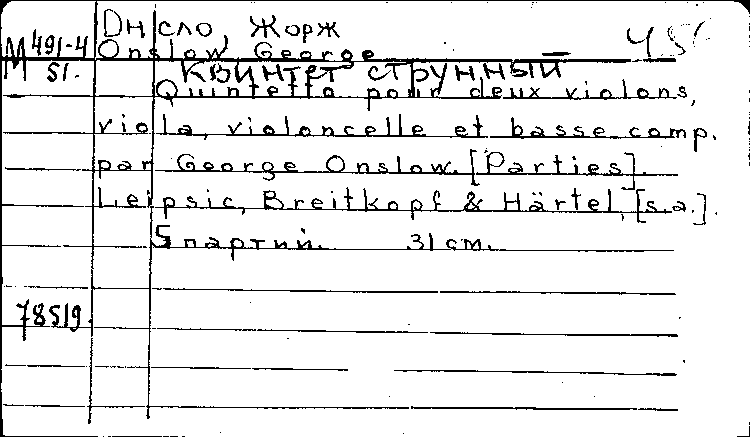 Онсло, Жорж
М 491-4 Onslow George
51. Квинтет струнный
Quintetto pour deux violons,
viola, violoncelle et basse comp.
par George Onslow. [Parties].
Leipsic, Breitkopf & Härtel, [s.a.].
5 партий. 31 см.
78519.